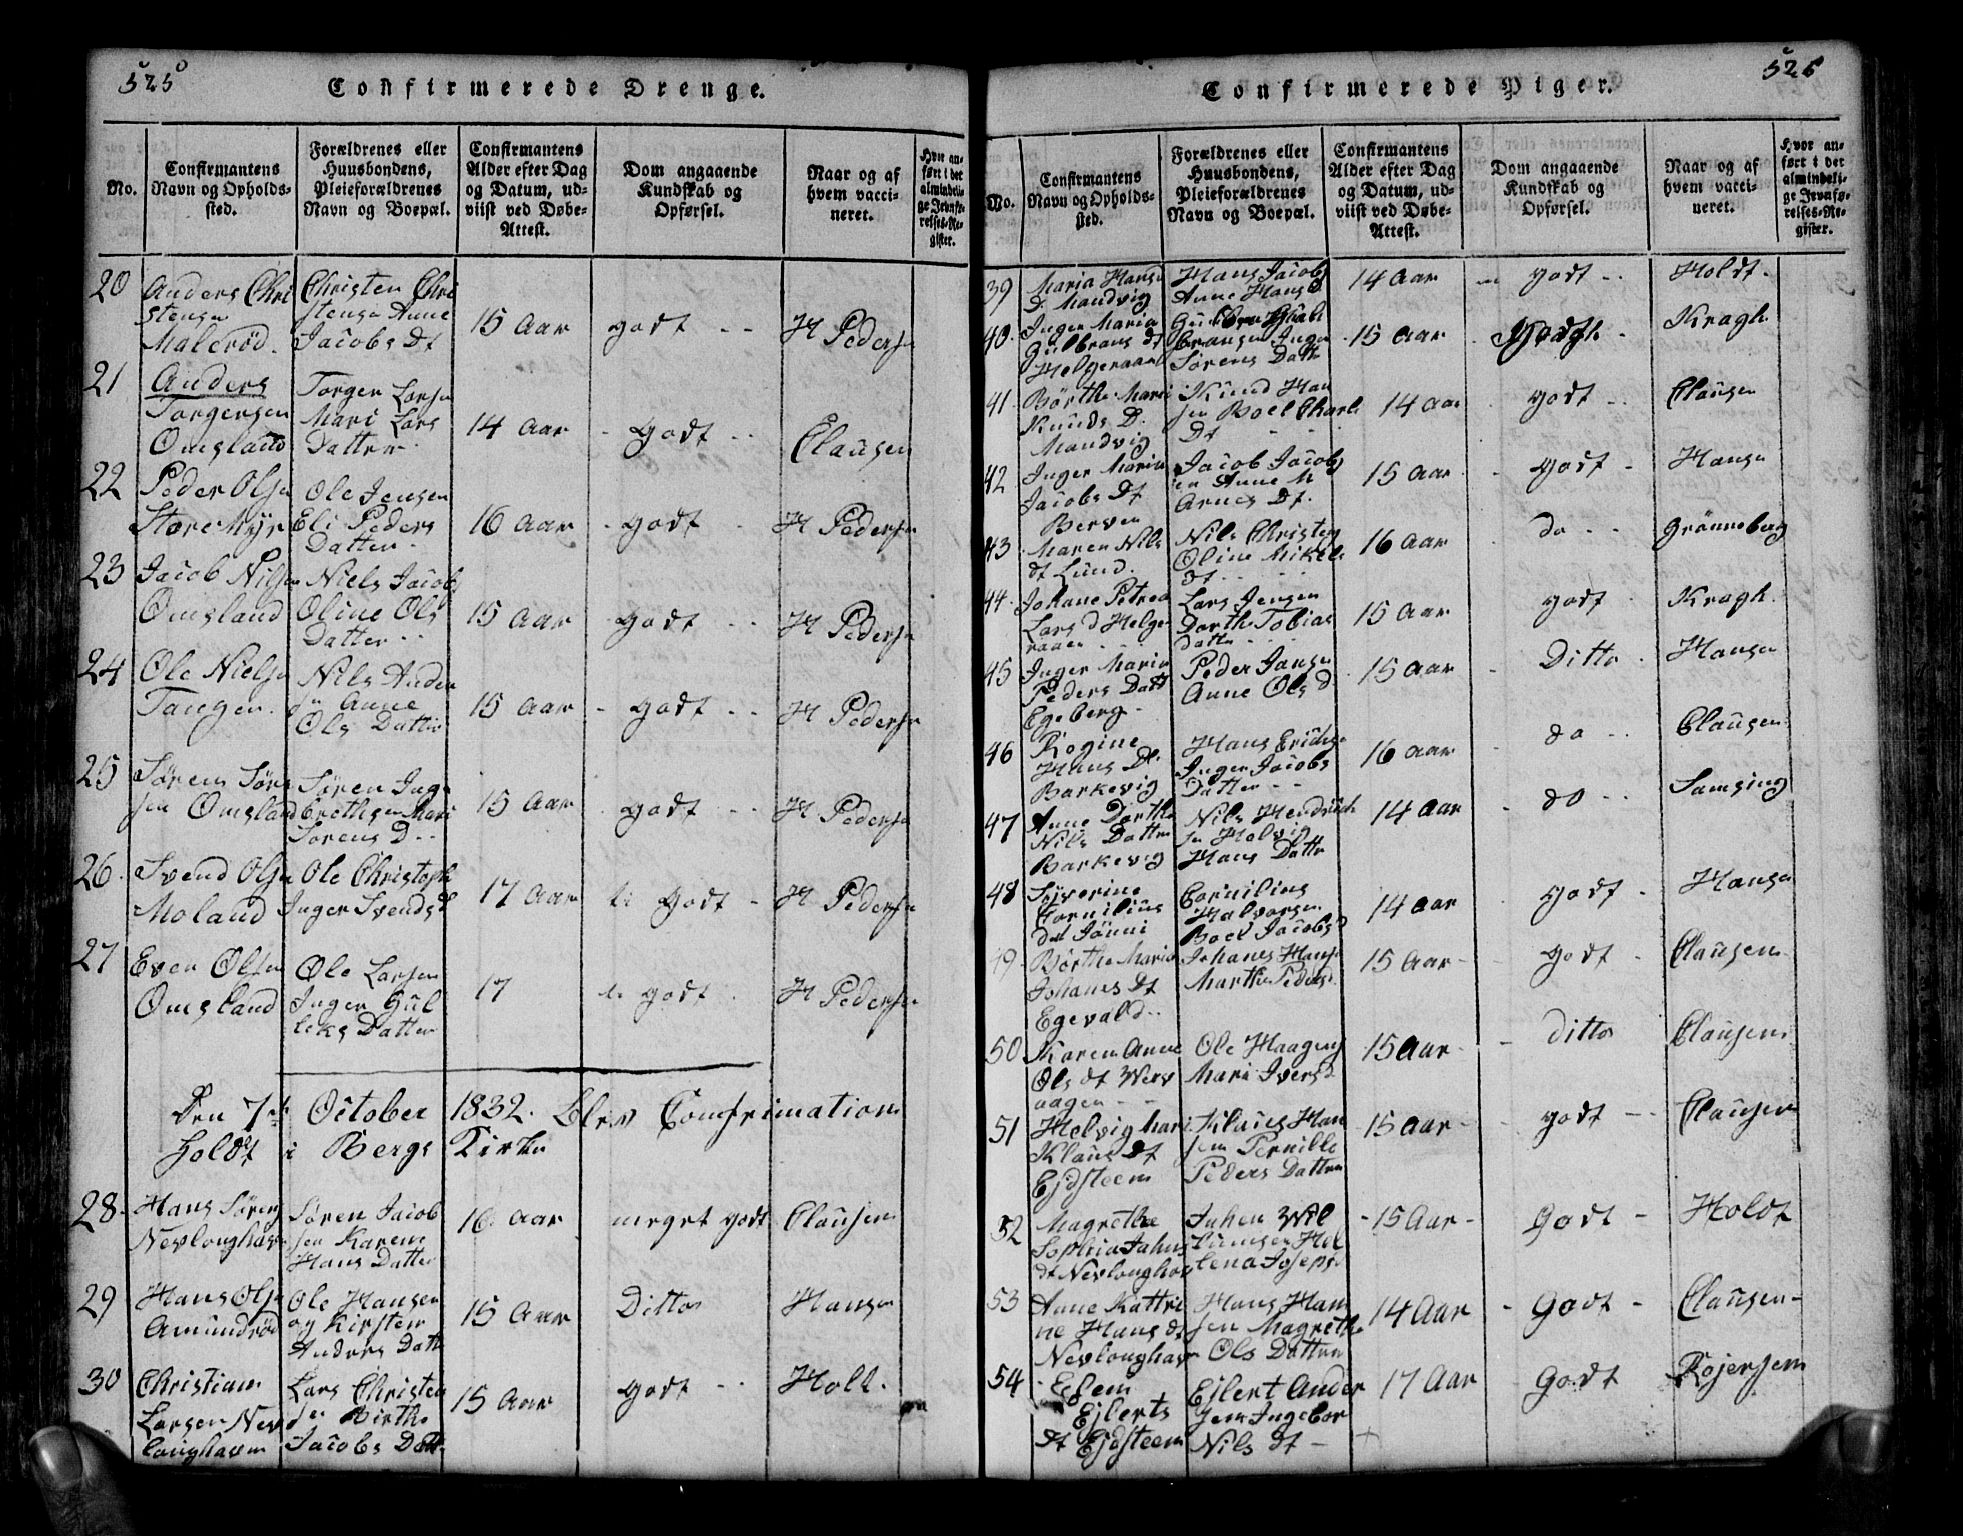 525
Confirmerede Drenge.
No.
Confirmantens
Navn og Opholds-
sted.
Forældrenes eller
Huusbondens,
Pleieforældrenes
Navn og Boepæl.
Confirmantens
Alder efter Dag
og Datum, ud-
viist ved Døbe-
Attest.
Dom angaaende
Kundskab og
Opførsel.
Naar og af
hvem vacci-
neret.
Hvor an-
ført i det
almindeli-
ge Jevnfø-
relses-Re-
gister.
20
Anders Chri
stensen
Malerød.
Christen Chri
stensen Anne
Jacobs Dt
15 Aar
godt
H Peders
21
Anders
Torgersen
Omsland
Torger Larsen
Mari Lars
Datter
14 Aar
godt
Clausen
22
Peder Olsen
Store Myr
Ole Jensen
Eli Peders
Datter
16 Aar
godt
H Pedersen
23
Jacob Nilsen
Omsland
Niels Jacobs
Oline Ols
Datter
15 Aar
godt
H Pedersen
24
Ole Nielsen
Tangen.
Nils Ander
sen Anne
Ols Datter
15 Aar
godt
H Pedersen
25
Søren Søren
sen Omsland
Søren Inge
brethsen Mari
Sørens D
15 Aar
godt
H Pedersen
26.
Svend Olsen
Moland
Ole Christoph
Inger Svends d
17 Aar
godt
H Pedersen
27
Even Olsen
Omsland
Ole Larsen
Inger Gul
leks Datter
17
godt
H Pedersen
Den 7de October 1832. Blev Confirmation
holdt i Bergs Kirke
28.
Hans Sørens
Nevlonghavn
Søren Jacob
sen Karen
Hans Datter
16 Aar
meget godt
Clausen
29
Hans Olsen
Amundrød
Ole Hansen
og Kirsten
Anders Datt
15 Aar
Ditto
Hansen
30
Christian
Larsen Nev
longhavn
Lars Christen
sen Birthe
Jacobs Datt
15 Aar
godt
Holt.
526
Confirmerede Piger.
No.
Confirmantens
Navn og Opholds-
sted.
Forældrenes eller
Huusbondens,
Pleieforældrenes
Navn og Boepæl.
Confirmantens
Alder efter Dag
og Datum, ud-
viist ved Døbe-
Attest.
Dom angaaende
Kundskab og
Opførsel.
Naar og af
hvem vacci-
neret.
Hvor an-
ført i det
almindeli-
ge Jevnfø-
relses-Re-
gister.
39
Maria Hans
D. Mandvig
Hans Jacobs
Anne Hans D
14 Aar
godt
Holdt.
40.
Inger Maria
Gulbrans dt
Helgeraaen
Inger
Sørens Datt
15 Aar
Godt
Kragh
41.
Børthe Mari
Knuds D.
Mandvig
Knud Han
sen Boel Charls
Dt
14 Aar
godt
Clausen
42
Inger Maria
Jacobs Dt
Berven
Jacob Jacobs
en Anne M
Arnes Dt.
15 Aar
godt
Hansen
43
Maren Nils
dt Lund.
Nils Christen
Oline Mikels
dt
16 Aar
do
Grønneberg
44.
Johane Petrea
Lars d Helge
raaen
Lars Jensen
Dorthe Tobias
datter
15 Aar
godt
Kragh.
45
Inger Maria
Peders Datt
Egeberg
Peder Jansen
Anne Ols d
15 Aar
Ditto
Hansen
46
Rogine
Hans Dt.
Barkevig
Hans Erichsen
Inger Jacobs
Datter
16 Aar
do
Clausen
47
Anne Dorthe
Nils Datter
Barkevig
Nils Hendrich
sen Helvig
Hans Datter
14 Aar
do
Samsing
48
Syverine
Cornilius
dat Jønni
Cornilius
Halvorsen
Boel Jacobs d
14 Aar
godt
Hansen
49.
Børthe Maria
Johans Dt
Egevald
Johanes Hans
Marthe Peders
15 Aar
godt
Clausen
50
Karen Anne
Ols dt Werv
aagen
Ole Haagens
Mari Ivers d
15 Aar
ditto
Clausen
51
Helvig Mari
Klaus dt
Ejdsteen
Klaues Han
sen Pernille
Peders Datter
15 Aar
godt
Clausen
52
Magrethe
Sophia Jahns
dt Nevlonghavn
Jahen Wil
lumsen Hel
lena Joseps
15 Aar
Godt
Holdt
53
Anne Kattri
ne Hans dt
Nevlonghavn
Hans Han
sen Magrethe
Ols Datter
14 Aar
Godt
Clausen
54
Ellen
Ejlerts
dt Ejdsteen
Ejlert Ander
sen Ingebor
Nils dt
17 Aar
Godt
Røjersen